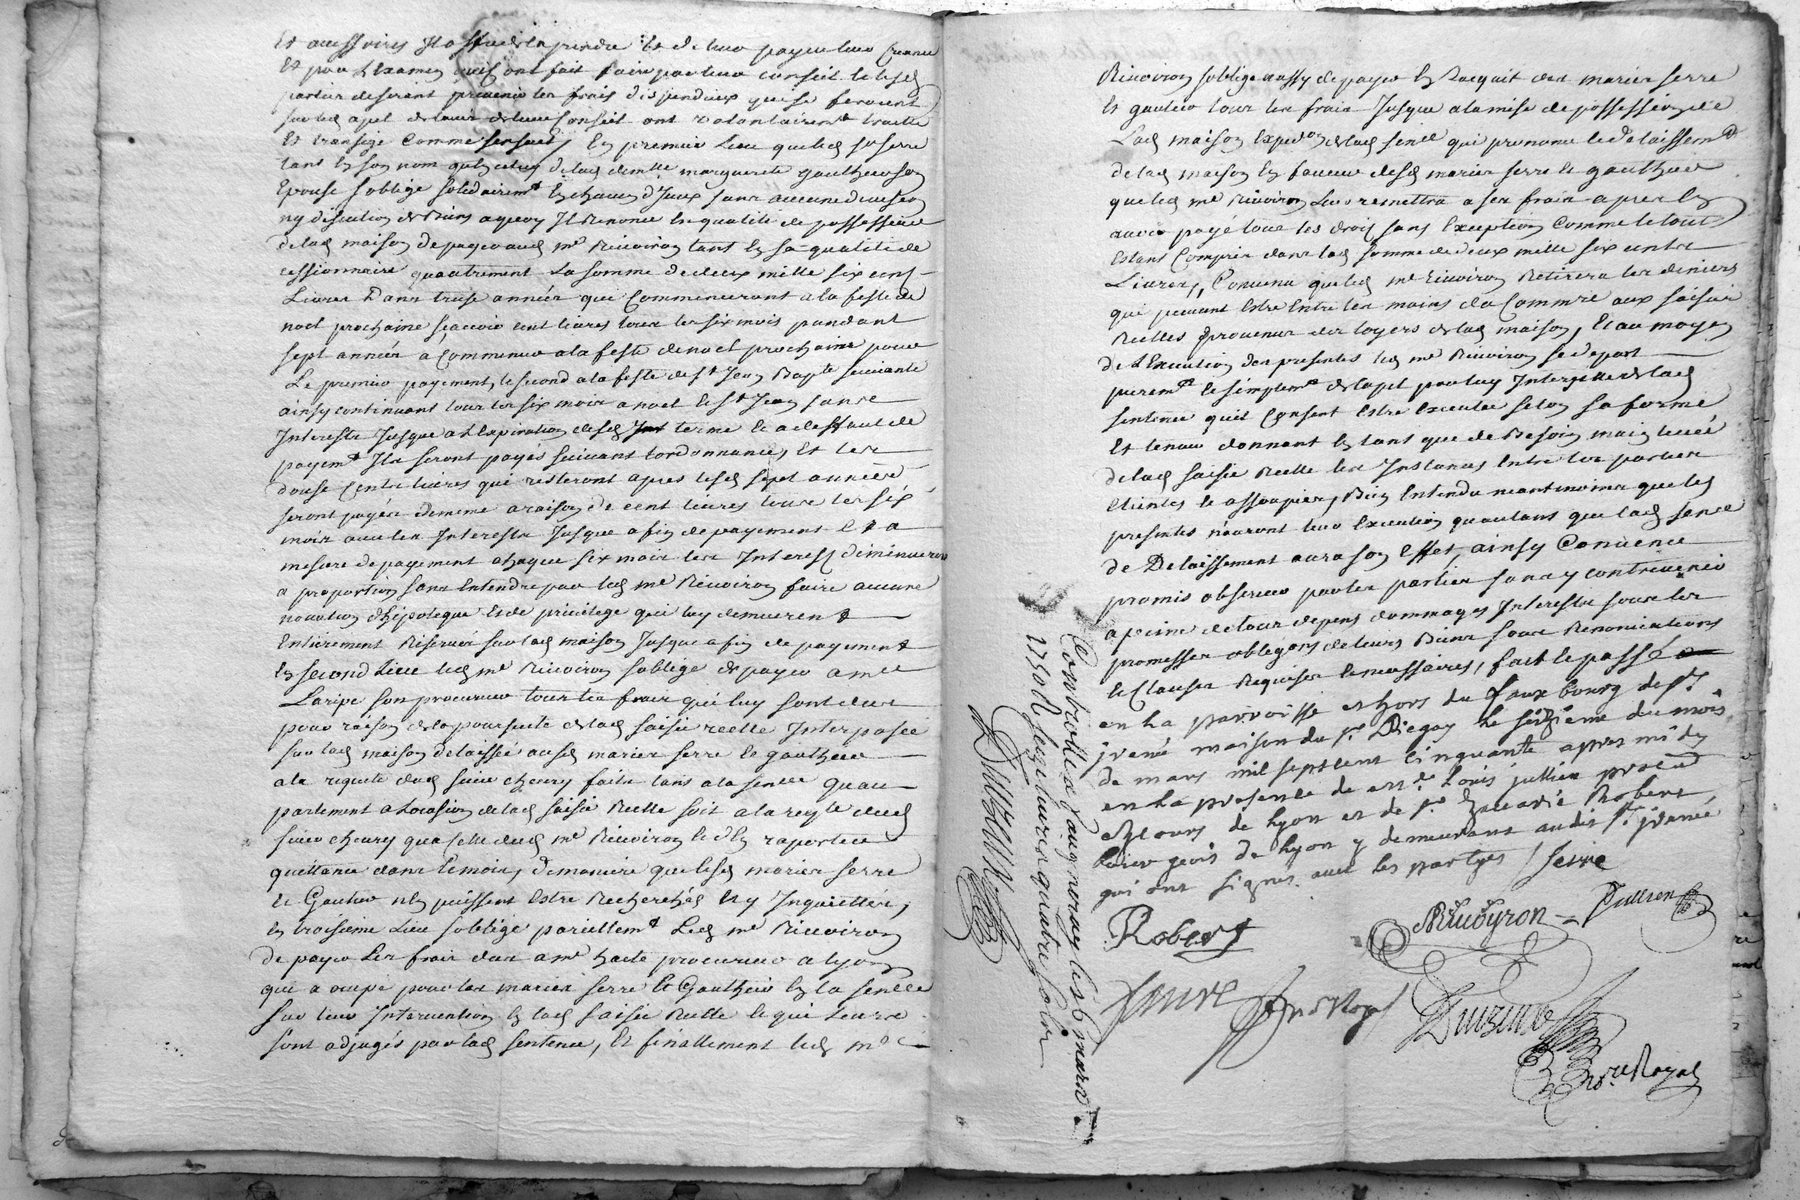 Et accessoires Il offre de la prendre Et de leur payer leur Creance
Et pour Examen qu'ils ont fait faire par leur conseil lesd
parties desirant prevenir les frais dispendieux qui se feroient
sur led apel de leur conseil ont volontairemt traitté
Et transigé Comme sensuit, En premier Lieu que led sr serre
tant En son nom qu'en celuy de lad demlle marguerite gauthier son
Epouse s'oblige solidairemt Et chacun d'Iceux sans aucune division
ny discution de Biens a quoy Il Renonce En qualité de possesseur
de lad maison de payer aud me Rieuvoiron tant En sa qualité de
cessionnaire qu'autrement La somme de deux mille six cens
Livres Dans treise années qui Commenceront a la feste de
noel prochaine sçavoir cent livres tous les six mois pendant
sept années à Commencer a la feste de noel prochaine pour
Le premier payement, le second a la feste de st Jean Bapte suivante
ainsy continuant tous les six mois a noel Et st Jean sans
Interests Jusque a l'Expiration desd sept terme Et a deffaut de
payemt Ils seront payés suivant l'ordonnance, Et les
douse Cents livres qui resteront apres lesd sept années
seront payés de meme a raison de cent livres tous les six
mois avec les Interests Jusque a fin de payement Et a
mesure de payement chaque six mois les Interest diminueron
a proportion sans Entendre par led me Rieuvoiron faire aucune
novation d'hipoteque Et de privilege qui luy demeurent
Entierement Reservés sur lad maison Jusque a fin de payement
En second Lieu led me Rieuvoiron s'oblige de payer a me
Laripe son procureur tous les frais qui luy sont dus
pour raison de la poursuite de lad saisie reelle Interposée
sur lad maison delaissée ausd mariés serre Et gauthier
a la requete dud sieur cheury faite tant a la senlle qu'au
parlement a Locasion de lad saisie Reelle soit a la reqte dud
sieur cheury que celle dud me Rieuvoiron Et d'En raporter
quittance dans le mois, de maniere que lesd mariés serre
Et Gautier n'En puissent Estre Recherchés ny Inquiettés,
En troisieme Lieu s'oblige pareillemt Led me Rieuvoiron
de payer Les frais dus a me hacte procureur a Lyon
qui a ocupé pour les mariés serre Et Gauthier En la senllee
sur leur Intervention En lad saisie Reelle Et qui Leurs
sont adjugés par lad sentence, Et finallement led me
Rieuvoiron s'oblige aussy de payer En l'acquit des mariés serre
Et gautier tous les frais Jusque a la mise de possession de
Lad maison Expedon de lad sence qui prononce le delaissemt
de lad maison En faveur desd mariés serre Et gauthier
que led me Rieuvoiron Leur remettra a ses frais apres En
avoir payé tous les droits sans Exception Comme le tout
Estant Compris dans lad somme de deux mille six cents
Livres, Convenu que led me Rieuvoiron Retirera les deniers
qui peuvent Estre Entre les mains du Commre aux saisies
Reelles provenus des loyers de lad maison, Et au moyen
de l'Execution des presentes led me Rieuvoiron se depart
puremt Et simplemt de l'apel par luy Interjetté de lad
sentence qu'il Consent Estre Executée selon sa forme
Et teneur donnant En tant que de Besoin main levée
de lad saisie Reelle les Instances Entre les parties
Eteintes Et assoupies, Bien Entendu neantmoins que les
presentes n'auront leur Execution qu'autant que lad sence
de Delaissement aura son Effet, ainsy Convenu
promis observer par les parties sans y contrevenir
a peine de tous depens dommages Interests sous les
promesses obligaons de leurs Biens sous Renonciations
Et Clauses Requises Et necessaires, fait Et passé
en la parroisse et hors du faux bourg de st
jrené maison du sr Diegoy le seizieme du mois
de mars mil sept cent cinquante apres midy
en la presence de mre Louis jullien procur
es cours de Lyon et de sr Zacarie Robert
bourgeois de Lyon y demeurant audit st jrenée
qui ont signés avec les partyes / serre
Robert Rieuvoyron Jullien
Duizeinc
nore Royal
Controllé a Vaugneray le 26 mars
1750 R seize livres quatre sols
Duizeinc